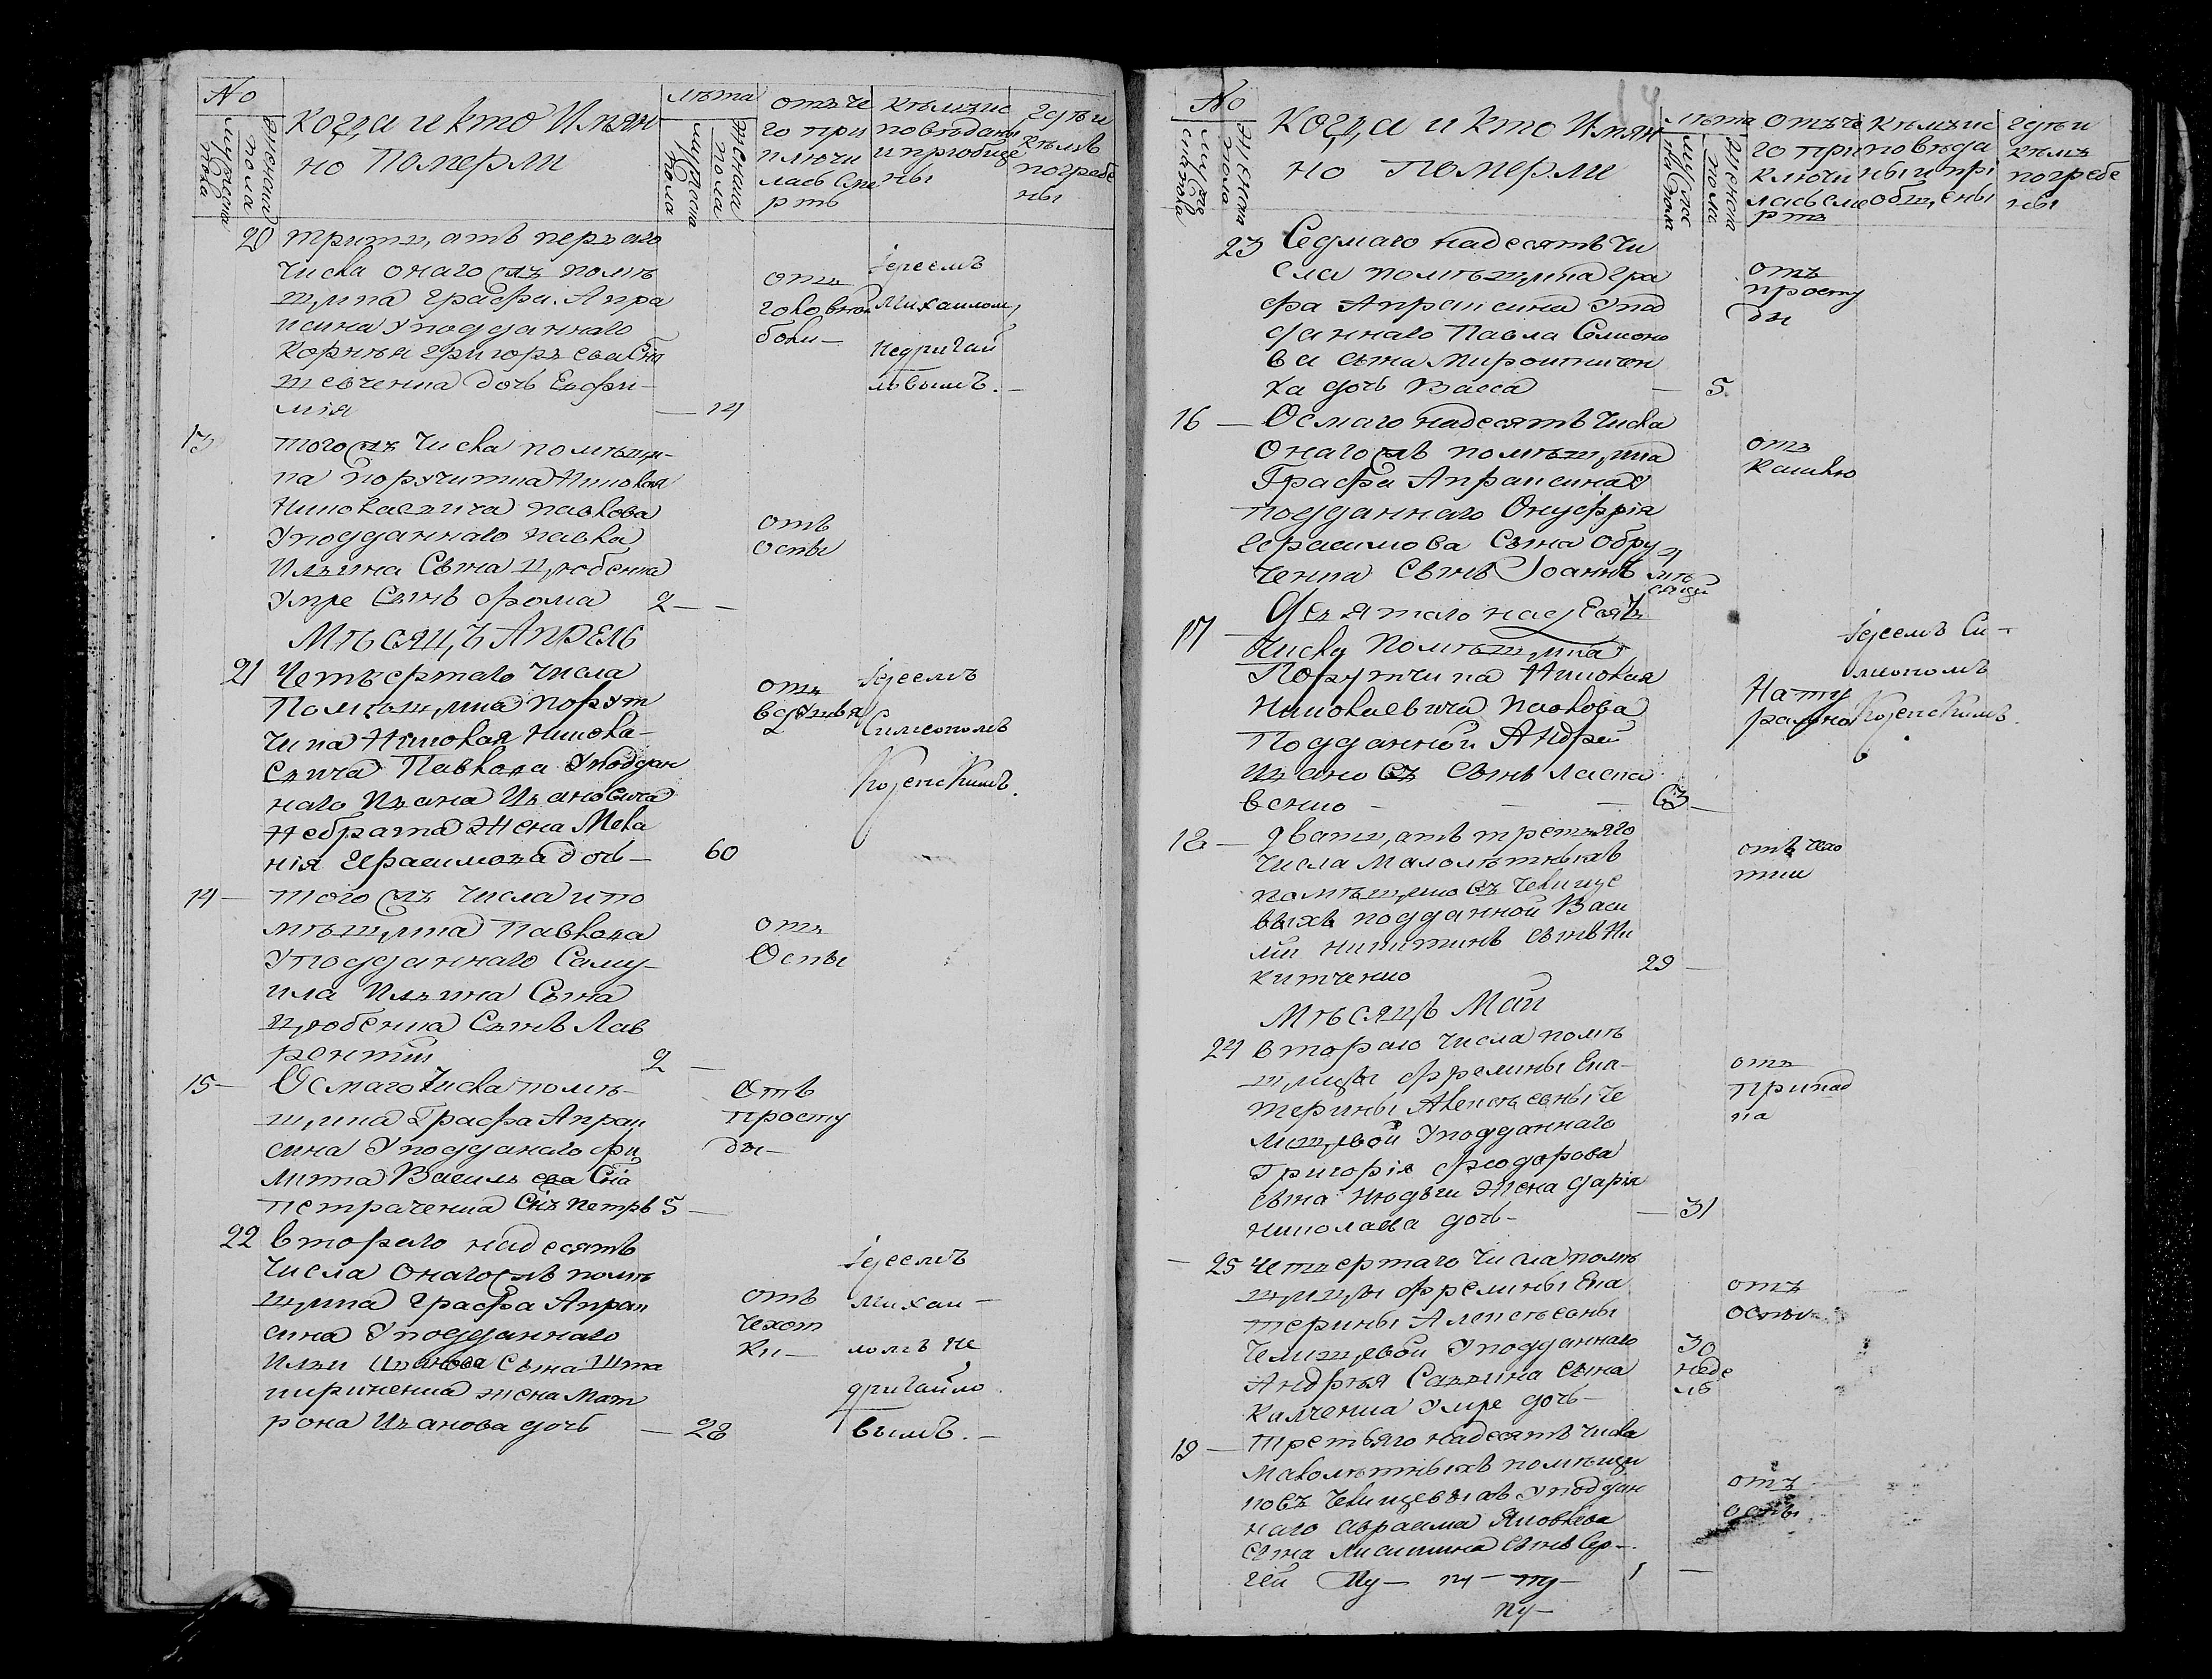 No
мужеска пола
женска пола
когда и кто Имян
но Померли
лѣта
мужеска пола
женска пола
отъ че
го при
ключи
лась Сме
рть
кѣмъ ис
повѣданы
и приобще
ны
гдѣ и
кѣмъ
погребе
ны
20 тритцать перваго
числа онаго жъ помѣ
щика графа Апра
ксина у подданнаго
Корнѣя григорьева Сна
шевченка дочь Евфи-
мія — 14
отъ
головной
боли —
Іереемъ
Михаиломъ
Недригай
ловымъ. —
13 того жъ числа помѣщи-
ка порутчика Николая
Николаевича павлова
у подданнаго павла
Ильина Сына цюбенка
умре Сынъ фома 2 — —
отъ
оспы
Мѣсяцъ Апрель
21 Четвертаго числа
Помѣщика порут
чика Николая Никола-
евича Павлова у поддан
наго Ивана Ивановича
Небрата жена Мела
нія Герасимова дочь — 60
отъ
Іереемъ
Симеономъ
Коренскимъ.
14 — того жъ числа и по
мѣщика Павлова
у подданнаго Саму-
ила Ильина Сына
цюбенка Сынъ Лав
рентій 2 —
отъ
Оспы
15 — Осмаго числа помѣ-
щика Графа Апрак
сина у подданаго фи
липа Васильева Сна
петраченка Снъ петръ 5 —
Отъ
просту
ды —
22 втораго надесять
числа онаго жъ помѣ
щика графа Апрак
сина у подданнаго
Ильи Иванова сына Шта
пиринка жена Мат
рона Иванова дочь — 28
отъ
чехот
ки —
Іереемъ
михаи —
ломъ не
дригайло
вымъ. —
No
мужеска пола
женска пола
Когда и кто Имян
но Померли
лѣта
мужеска пола
женска пола
отъ че
го при
ключи
лась сме
рть
кѣмъ ис
повѣда
ны и прі
общены
гдѣ и
кѣмъ
погребе
ны
23 Седмаго надесять чи
сла помѣщика гра
фа Апраксина у под
даннаго Павла Семено
ва сына Мирошничен
ка дочь Васса — 5.
отъ
просту
ды
16 — Осмаго надесять числа
Онаго жъ помѣщика
Графа Апраксина у
подданнаго Онуфрія
Герасимова Сына Обру
ченка Сынъ Іоаннъ
отъ
кашлю
17 — Девятаго надесять
числа Помѣщика
Порутчика Николая
Николаевича Павлова
Подданной Андрей
Ивановъ Сынъ Ласка
венко — — — 63 —
Нату
рально
Іереемъ Си —
меономъ
Коренскимъ.
18 — Дватцать третьяго
числа Малолѣтныхъ
помѣщиковъ Челище
выхъ подданной Васи
лій никитинъ сынъ Ни
китченко 29 —
отъ чехо
тки
Мѣсяцъ Май
24 втораго числа помѣ
щицы фрелины Ека-
терины Алексѣевны Че
лищевой у подданнаго
Григорія феодорова
сына жена дарія
николаева дочь — — 31
отъ
припад
ка
— 25 четвертаго числа помѣ
щицы фрелины Ека
терины Алексѣевны
Челищевой у подданнаго
Андрѣя Саввина Сына
Калченка умре дочь —
30
неде
ль
отъ
оспы
19 — третьяго надесять числа
Малолѣтныхъ помѣщи
ковъ Челищевыхъ у поддан
наго Авраама Яковлева
сына Лисичкина Сынъ Сер —
гей 1 —
отъ
оспы